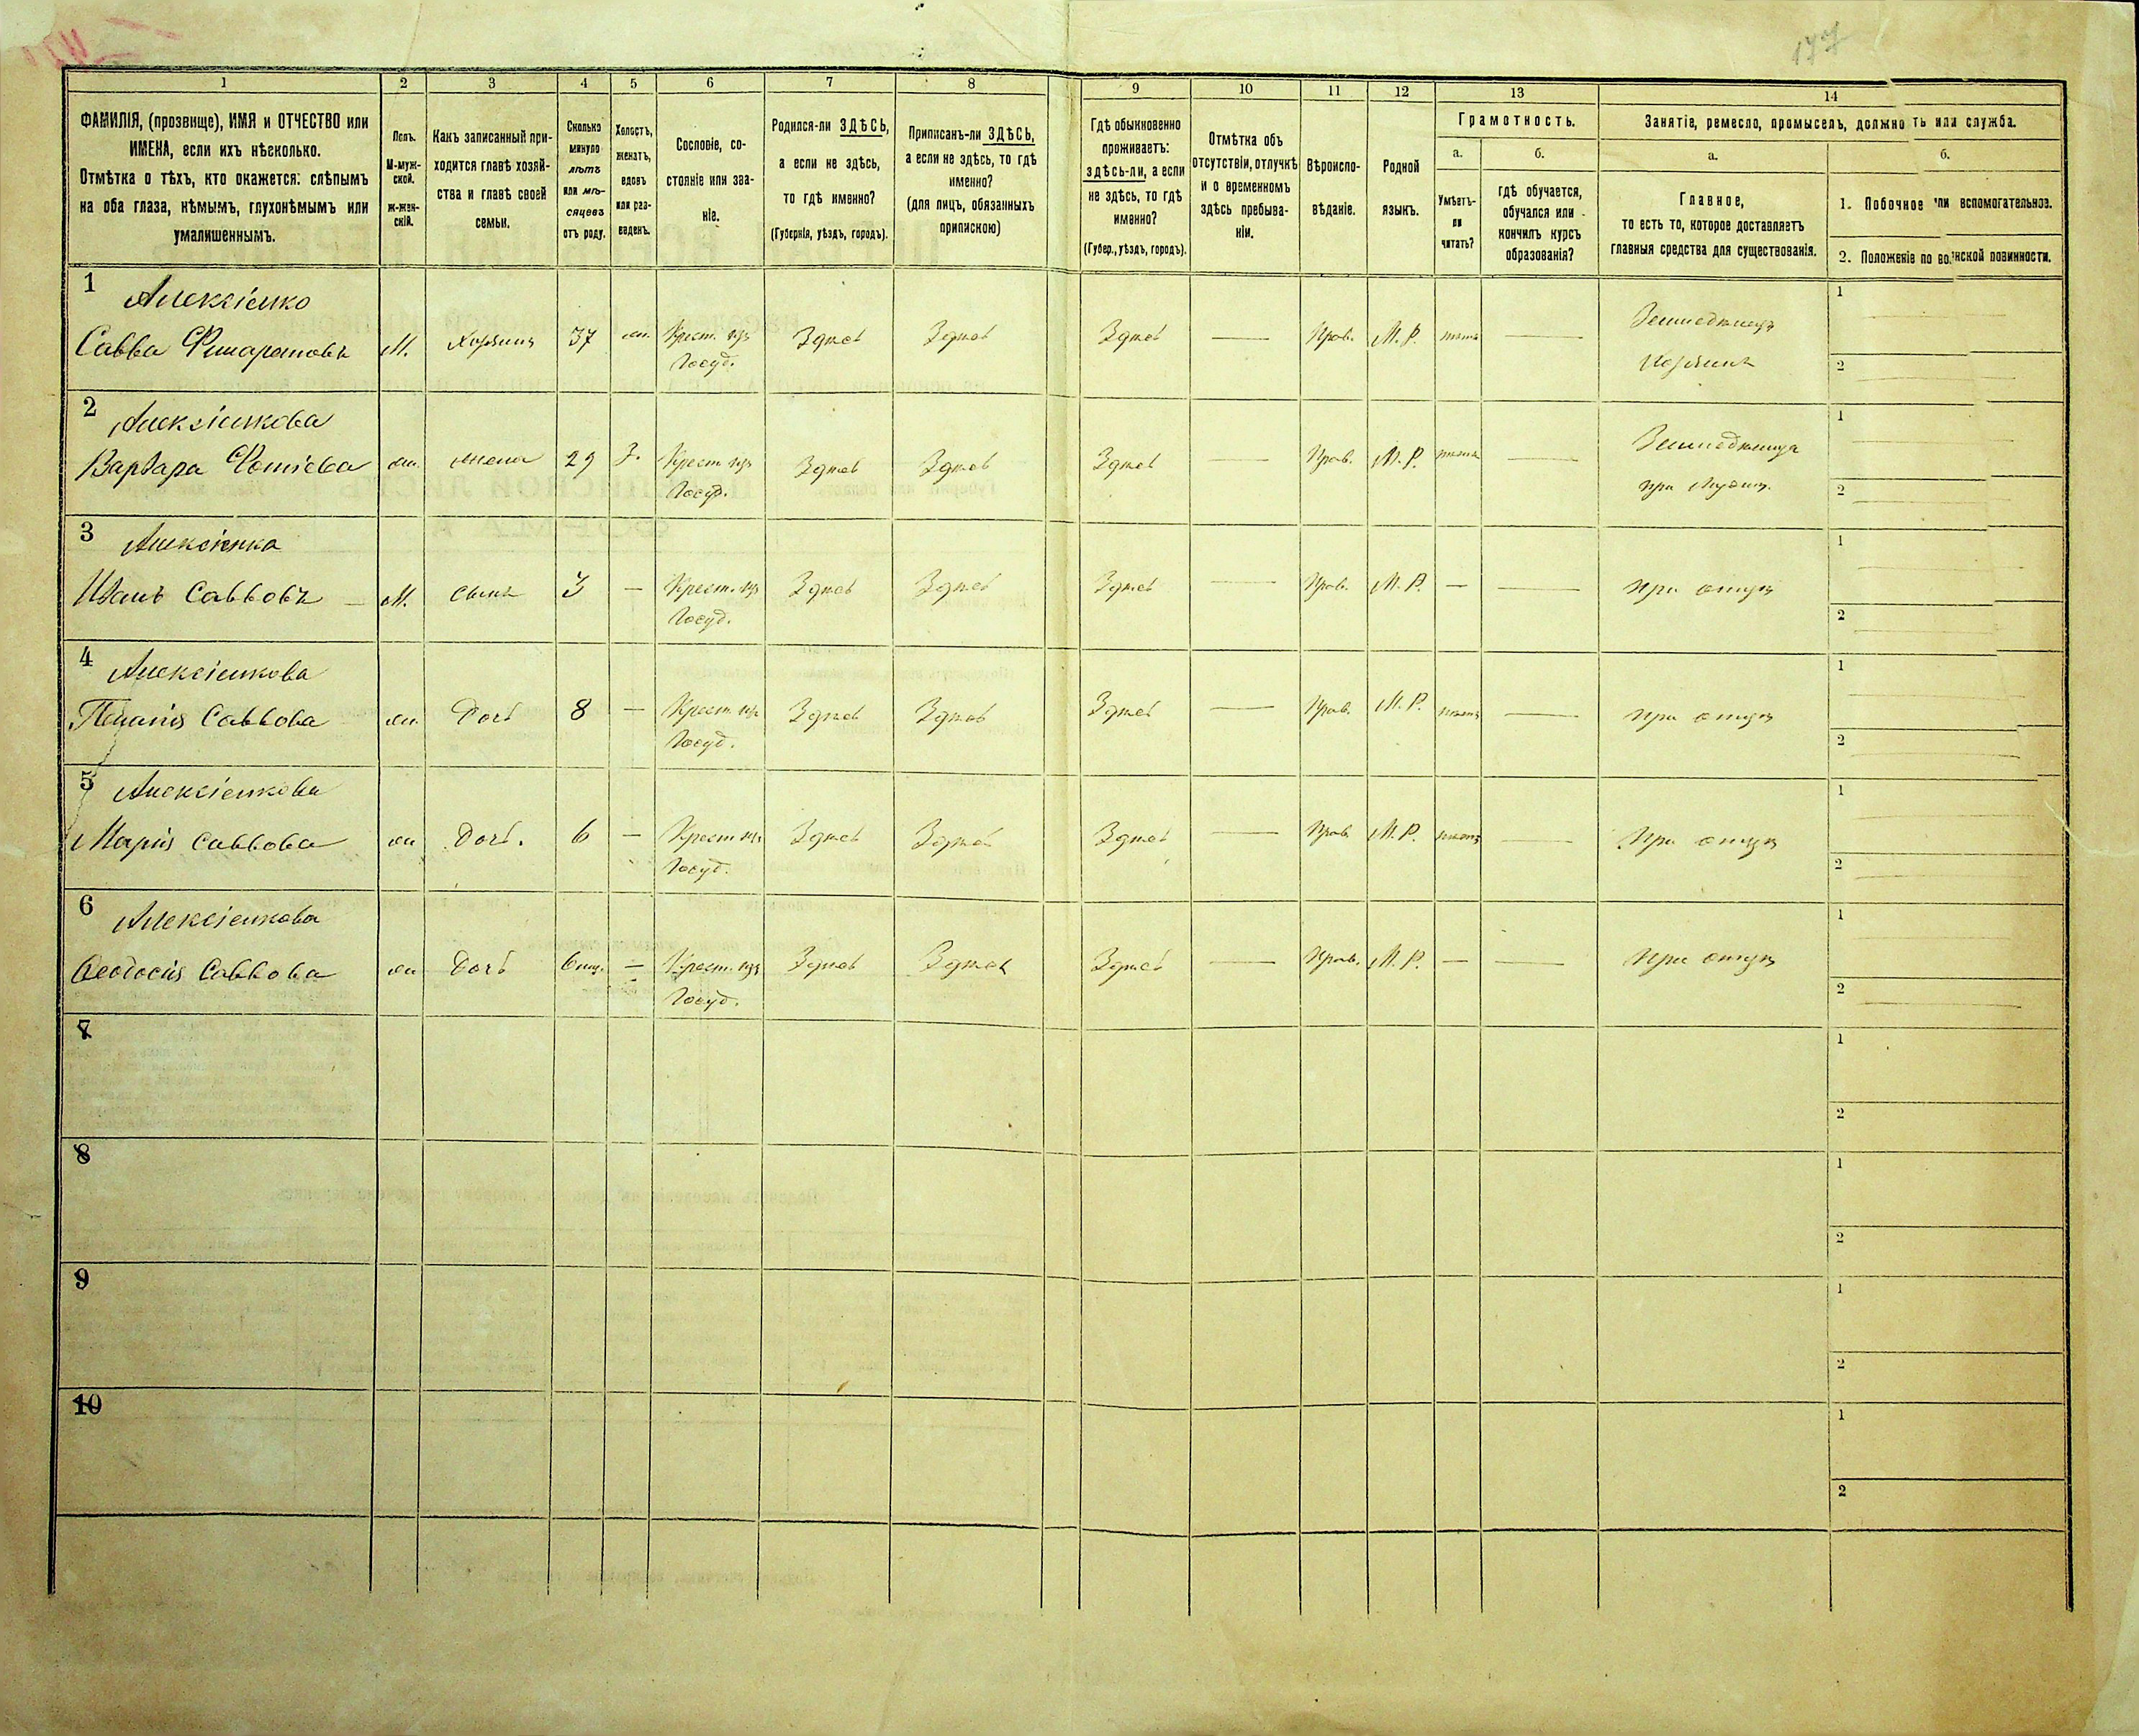 177
1 2 3 4 5 6 7 8 9 10 11 12 13 14
ФАМИЛІЯ, (прозвище), ИМЯ и ОТЧЕСТВО или
ИМЕНА, если ихъ нѣсколько.
Отмѣтка о тѣхъ, кто окажется: слѣпымъ
на оба глаза, нѣмымъ, глухонѣмымъ или
умалишеннымъ.
Полъ.
М-муж-
ской.
Ж-жен-
скій.
Какъ записанный при-
ходится главѣ хозяй-
ства и главѣ своей
семьи.
Сколько
минуло
лѣтъ
или мѣ-
сяцевъ
отъ роду.
Холостъ,
женатъ,
вдовъ
или раз-
веденъ.
Сословіе, со-
стояніе или зва-
ніе.
Родился-ли ЗДѢСЬ,
а если не здѣсь,
то гдѣ именно?
(Губернія, уѣздъ, городъ).
Приписанъ-ли ЗДѢСЬ,
а если не здѣсь, то гдѣ
именно?
(для лицъ, обязанныхъ
припискою)
Гдѣ обыкновенно
проживаетъ:
здѣсь-ли, а если
не здѣсь, то гдѣ
именно?
(Губер., уѣздъ, городъ).
Отмѣтка объ
отсутствіи, отлучкѣ
и о временномъ
здѣсь пребыва-
ніи.
Вѣроиспо-
вѣданіе.
Родной
языкъ.
Грамотность.
а.
Умѣетъ-
ли
читать?
б.
гдѣ обучается,
обучался или
кончилъ курсъ
образованія?
Занятіе, ремесло, промыселъ, должно ть или служба.
а.
Главное,
то есть то, которое доставляетъ
главныя средства для существованія.
б.
1. Побочное или вспомогательное.
2. Положеніе по воинской повинности.
1 Алексіенко
Савва Филаретовъ М. Хозяинъ 37 ж. Крест. изъ Здѣсь Здѣсь Здѣсь — Прав. М. Р. нѣтъ — Земледѣлецъ 1
Госуд. Хозяинъ 2
2 Алексіенкова
Варвара Фотіева ж. жена 29 З. Крест изъ Здѣсь Здѣсь Здѣсь — Прав. М. Р. нѣтъ — Земледѣлица 1
Госуд. при 2
3 Алексіенко
Иванъ Саввовъ — М. сынъ 3 — Крест. изъ Здѣсь Здѣсь Здѣсь — Прав. М. Р. — При отцѣ 1
Госуд. 2
4 Алексіенкова
Пелагія Саввова ж. Дочь 8 — Крест изъ Здѣсь Здѣсь Здѣсь — Прав. М. Р. нѣтъ — при отцѣ 1
Госуд. 2
5 Алексіенкова
Марія Саввова ж Дочь. 6 — Крест изъ Здѣсь Здѣсь Здѣсь — Прав. М. Р. нѣтъ — При отцѣ 1
Госуд. 2
6 Алексіенкова
Ѳеодосія Саввова ж Дочь 6 мц. — Крест. изъ Здѣсь Здѣсь Здѣсь — Прав. М. Р. — — При отцѣ 1
Госуд. 2
7 1
2
8 1
2
9 1
2
10 1
2